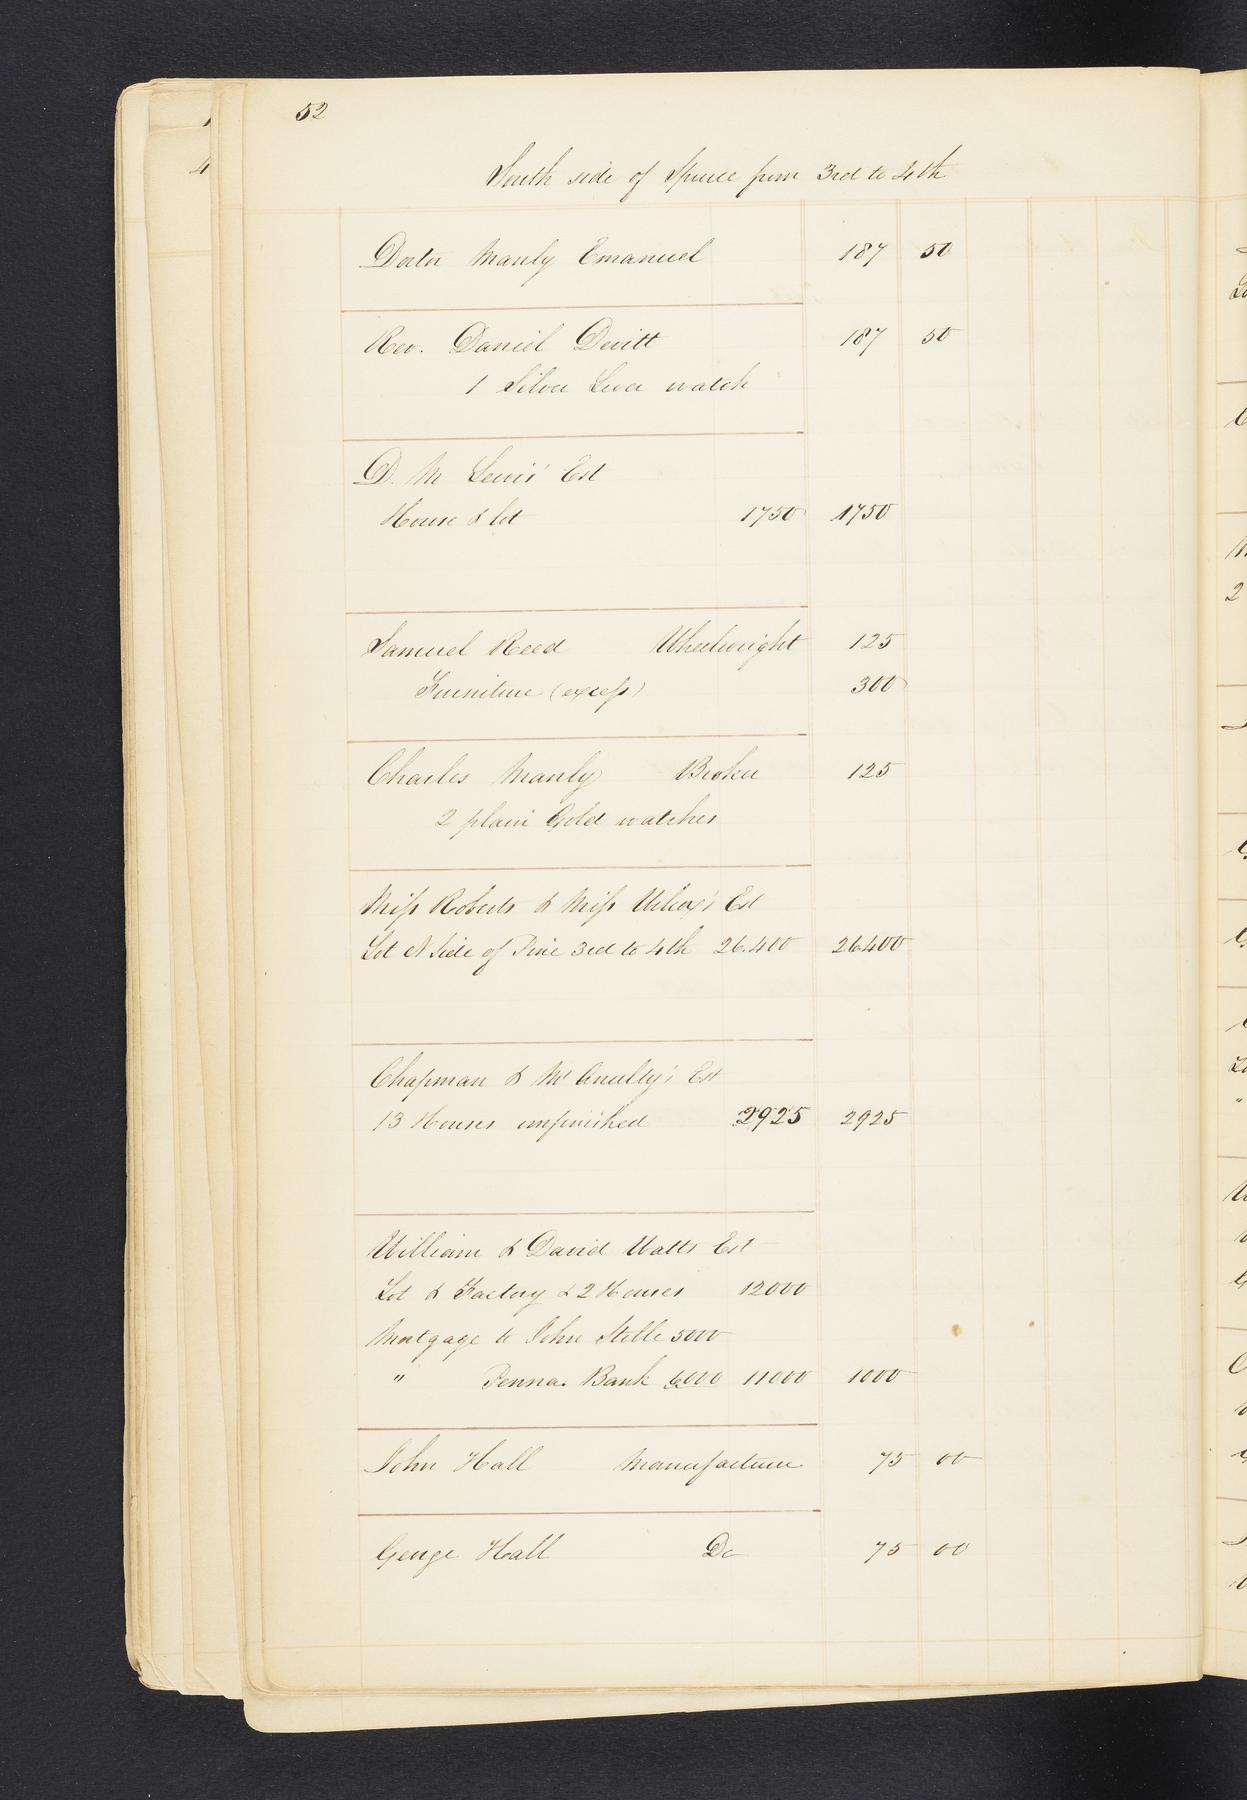 52
South side of Spruce from 3rd to 4th
Doctor Manly Emanuel 187 50
Rev. Daniel Devitt 187 50
1 Silver Lever watch
D. M Lewis' Est
House & lot 1750 1750
Samuel Reed Wheelwright 125
Furniture (excess) 300
Charles Manly Broker 125
2 plain Gold watches
Miss Roberts & Miss Wilcox's Est
Lot N Side of Pine 3rd to 4th 26.400 26400
Chapman & McAnully's Est
13 Houses unfinished 2925 2925
William & David Watts Est
Lot & Factory & 2 Houses 12000
Mortgage to John Stille 5000
" Penna. Bank 6000 11000 1000
John Hall Manufacturer 75 00
George Hall Do 75 00